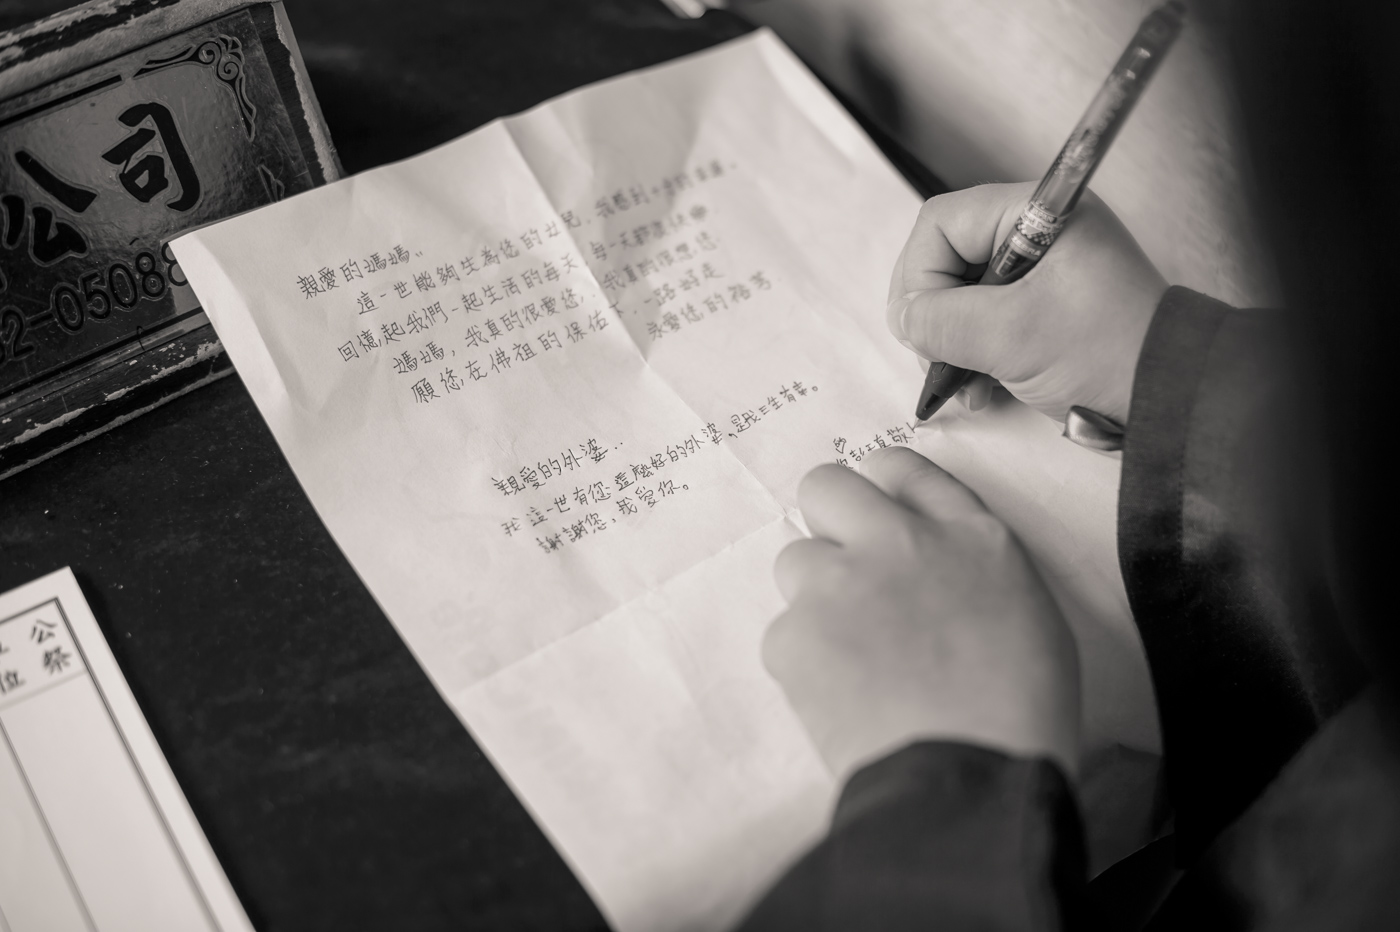 公司
2-05088
親愛的媽媽：
這一世能夠生為您的女兒，我感到十分的幸運，
回憶起我們一起生活的每天，每一天都很快樂
媽媽，我真的很愛您，我真的很想您
願您在佛祖的保佑下，一路好走
永愛您的裕芳
親愛的外婆：
我這一世有您這麼好的外婆，是我三生有幸。
謝謝您，我愛你。
敬上
公
位 祭